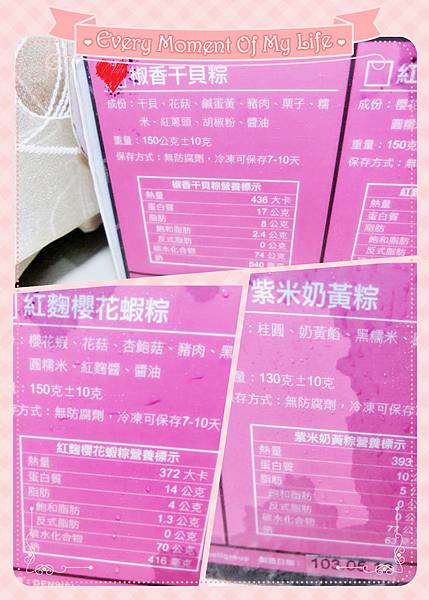 Every Moment Of My Life
椒香干貝粽
成份：干貝、花菇、鹹蛋黃、豬肉、栗子、糯
米、紅蔥頭、胡椒粉、醬油
重量：150公克±10克
保存方式：無防腐劑，冷凍可保存7-10天
椒香干貝粽營養標示
熱量 436 大卡
蛋白質 17 公克
脂肪 8 公克
飽和脂肪 2.4 公克
反式脂肪 0 公克
碳水化合物 74 公克
鈉 540 毫克
紅
成份：櫻花
圓糯
重量：150克
保存方式：無
紅麴
熱量
蛋白質
脂肪
飽和脂肪
反式脂肪
碳水化合物
鈉
紅麴櫻花蝦粽
：櫻花蝦、花菇、杏鮑菇、豬肉、黑
圓糯米、紅麴醬、醬油
：150克±10克
方式：無防腐劑，冷凍可保存7-10天
紅麴櫻花蝦粽營養標示
熱量 372 大卡
蛋白質 14 公克
脂肪 4 公克
飽和脂肪 1.3 公克
反式脂肪 0 公克
碳水化合物 70 公克
鈉 416 毫克
紫米奶黃粽
：桂圓、奶黃餡、黑糯米、
量：130克±10克
保存方式：無防腐劑，冷凍可保存
紫米奶黃粽營養標示
熱量 393
蛋白質 10
脂肪 5
飽和脂肪 0
反式脂肪 0
碳水化合物 77
鈉 63
製造日期： 103.05